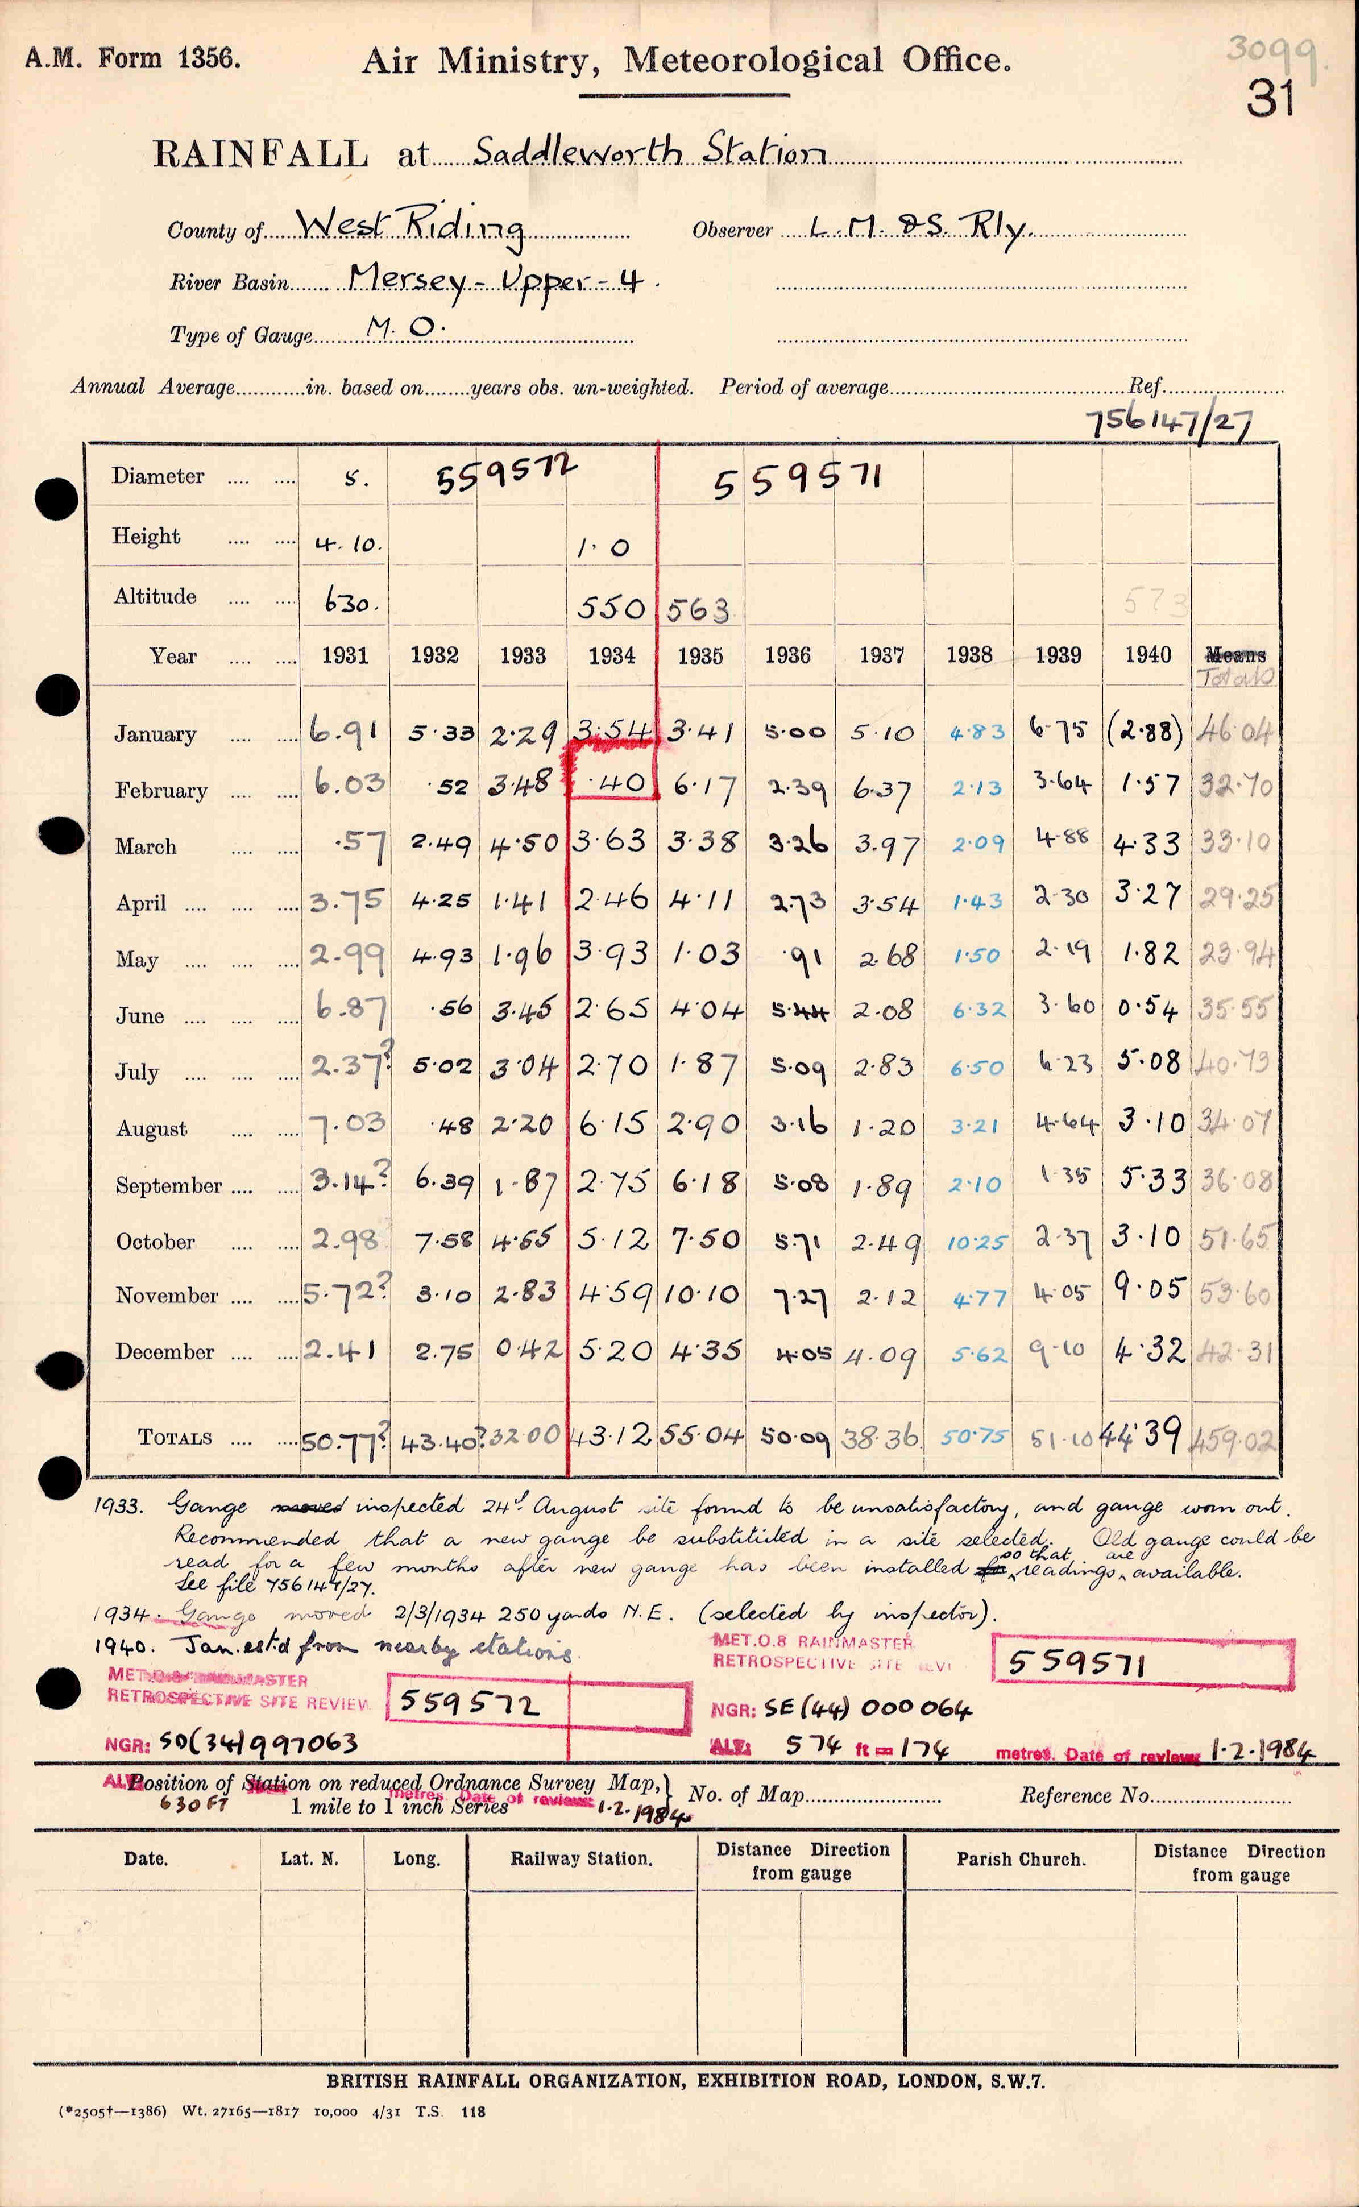 A.M. Form 1356. Air Ministry, Meteorological Office. 3099.
31
RAINFALL at Saddleworth Station
County of West Riding Observer L.M.&S. Rly.
River Basin Mersey - Upper - 4.
Type of Gauge M.O.
Annual Average in. based on years obs. un-weighted. Period of average Ref.
756147/27
Diameter 5. 559572 559571
Height 4.10. 1.0
Altitude 630. 550 563 573
Year 1931 1932 1933 1934 1935 1936 1937 1938 1939 1940 Means
Totals
January 6.91 5.33 2.29 3.54 3.41 5.00 5.10 4.83 6.75 (2.88) 46.04
February 6.03 .52 3.48 .40 6.17 2.39 6.37 2.13 3.64 1.57 32.70
March .57 2.49 4.50 3.63 3.38 3.26 3.97 2.09 4.88 4.33 33.10
April 3.75 4.25 1.41 2.46 4.11 2.73 3.54 1.43 2.30 3.27 29.25
May 2.99 4.93 1.96 3.93 1.03 .91 2.68 1.50 2.19 1.82 23.94
June 6.87 .56 3.45 2.65 4.04 5.44 2.08 6.32 3.60 0.54 35.55
July 2.37? 5.02 3.04 2.70 1.87 5.09 2.83 6.50 6.23 5.08 40.73
August 7.03 .48 2.20 6.15 2.90 3.16 1.20 3.21 4.64 3.10 34.07
September 3.14? 6.39 1.87 2.75 6.18 5.08 1.89 2.10 1.35 5.33 36.08
October 2.98 7.58 4.55 5.12 7.50 5.71 2.49 10.25 2.37 3.10 51.65
November 5.72? 3.10 2.83 4.59 10.10 7.27 2.12 4.77 4.05 9.05 53.60
December 2.41 2.75 0.42 5.20 4.35 4.05 4.09 5.62 9.10 4.32 42.31
TOTALS 50.77? 43.40? 32.00 43.12 55.04 50.09 38.36 50.75 51.10 44.39 459.02
1933. Gauge moved inspected 24th August site found to be unsatisfactory, and gauge worn out.
Recommended that a new gauge be substituted in a site selected. Old gauge could be
read for a few months after new gauge has been installed so that readings are available.
See file 756147/27.
1934. Gauge moved 2/3/1934 250 yards N.E. (selected by inspector).
1940. Jan. est'd from nearby stations.
MET.O.8 RAINMASTER
RETROSPECTIVE SITE REVIEW 559572
NGR: SD(34)997063
MET.O.8 RAINMASTER
RETROSPECTIVE SITE REVI 559571
NGR: SE(44) 000 064
ALT: 574 ft = 174 metres. Date of review: 1.2.1984
ALT 630 FT metres. Date of review: 1.2.1984
Position of Station on reduced Ordnance Survey Map, No. of Map Reference No.
1 mile to 1 inch Series
Date. Lat. N. Long. Railway Station. Distance Direction from gauge Parish Church. Distance Direction from gauge
BRITISH RAINFALL ORGANIZATION, EXHIBITION ROAD, LONDON, S.W.7.
(*2505†—1386) Wt. 27165—1817 10,000 4/31 T.S. 118